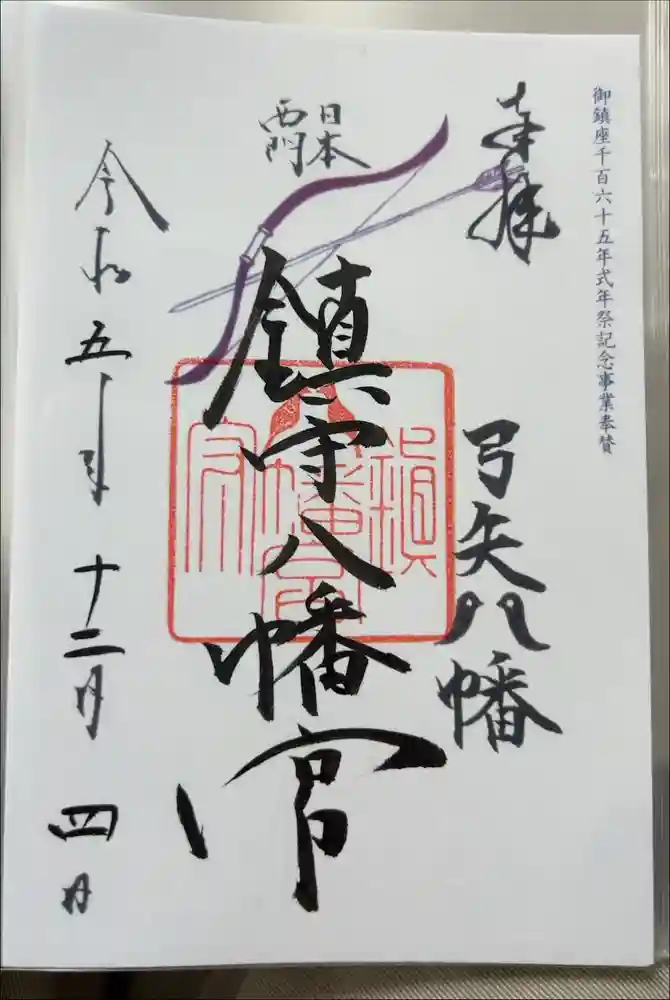 御鎮座千百六十五年式年祭記念事業奉賛
奉拝
弓矢八幡
日本
鎮守八幡宮
鎮
八幡宮
守
令和五年十二月四日